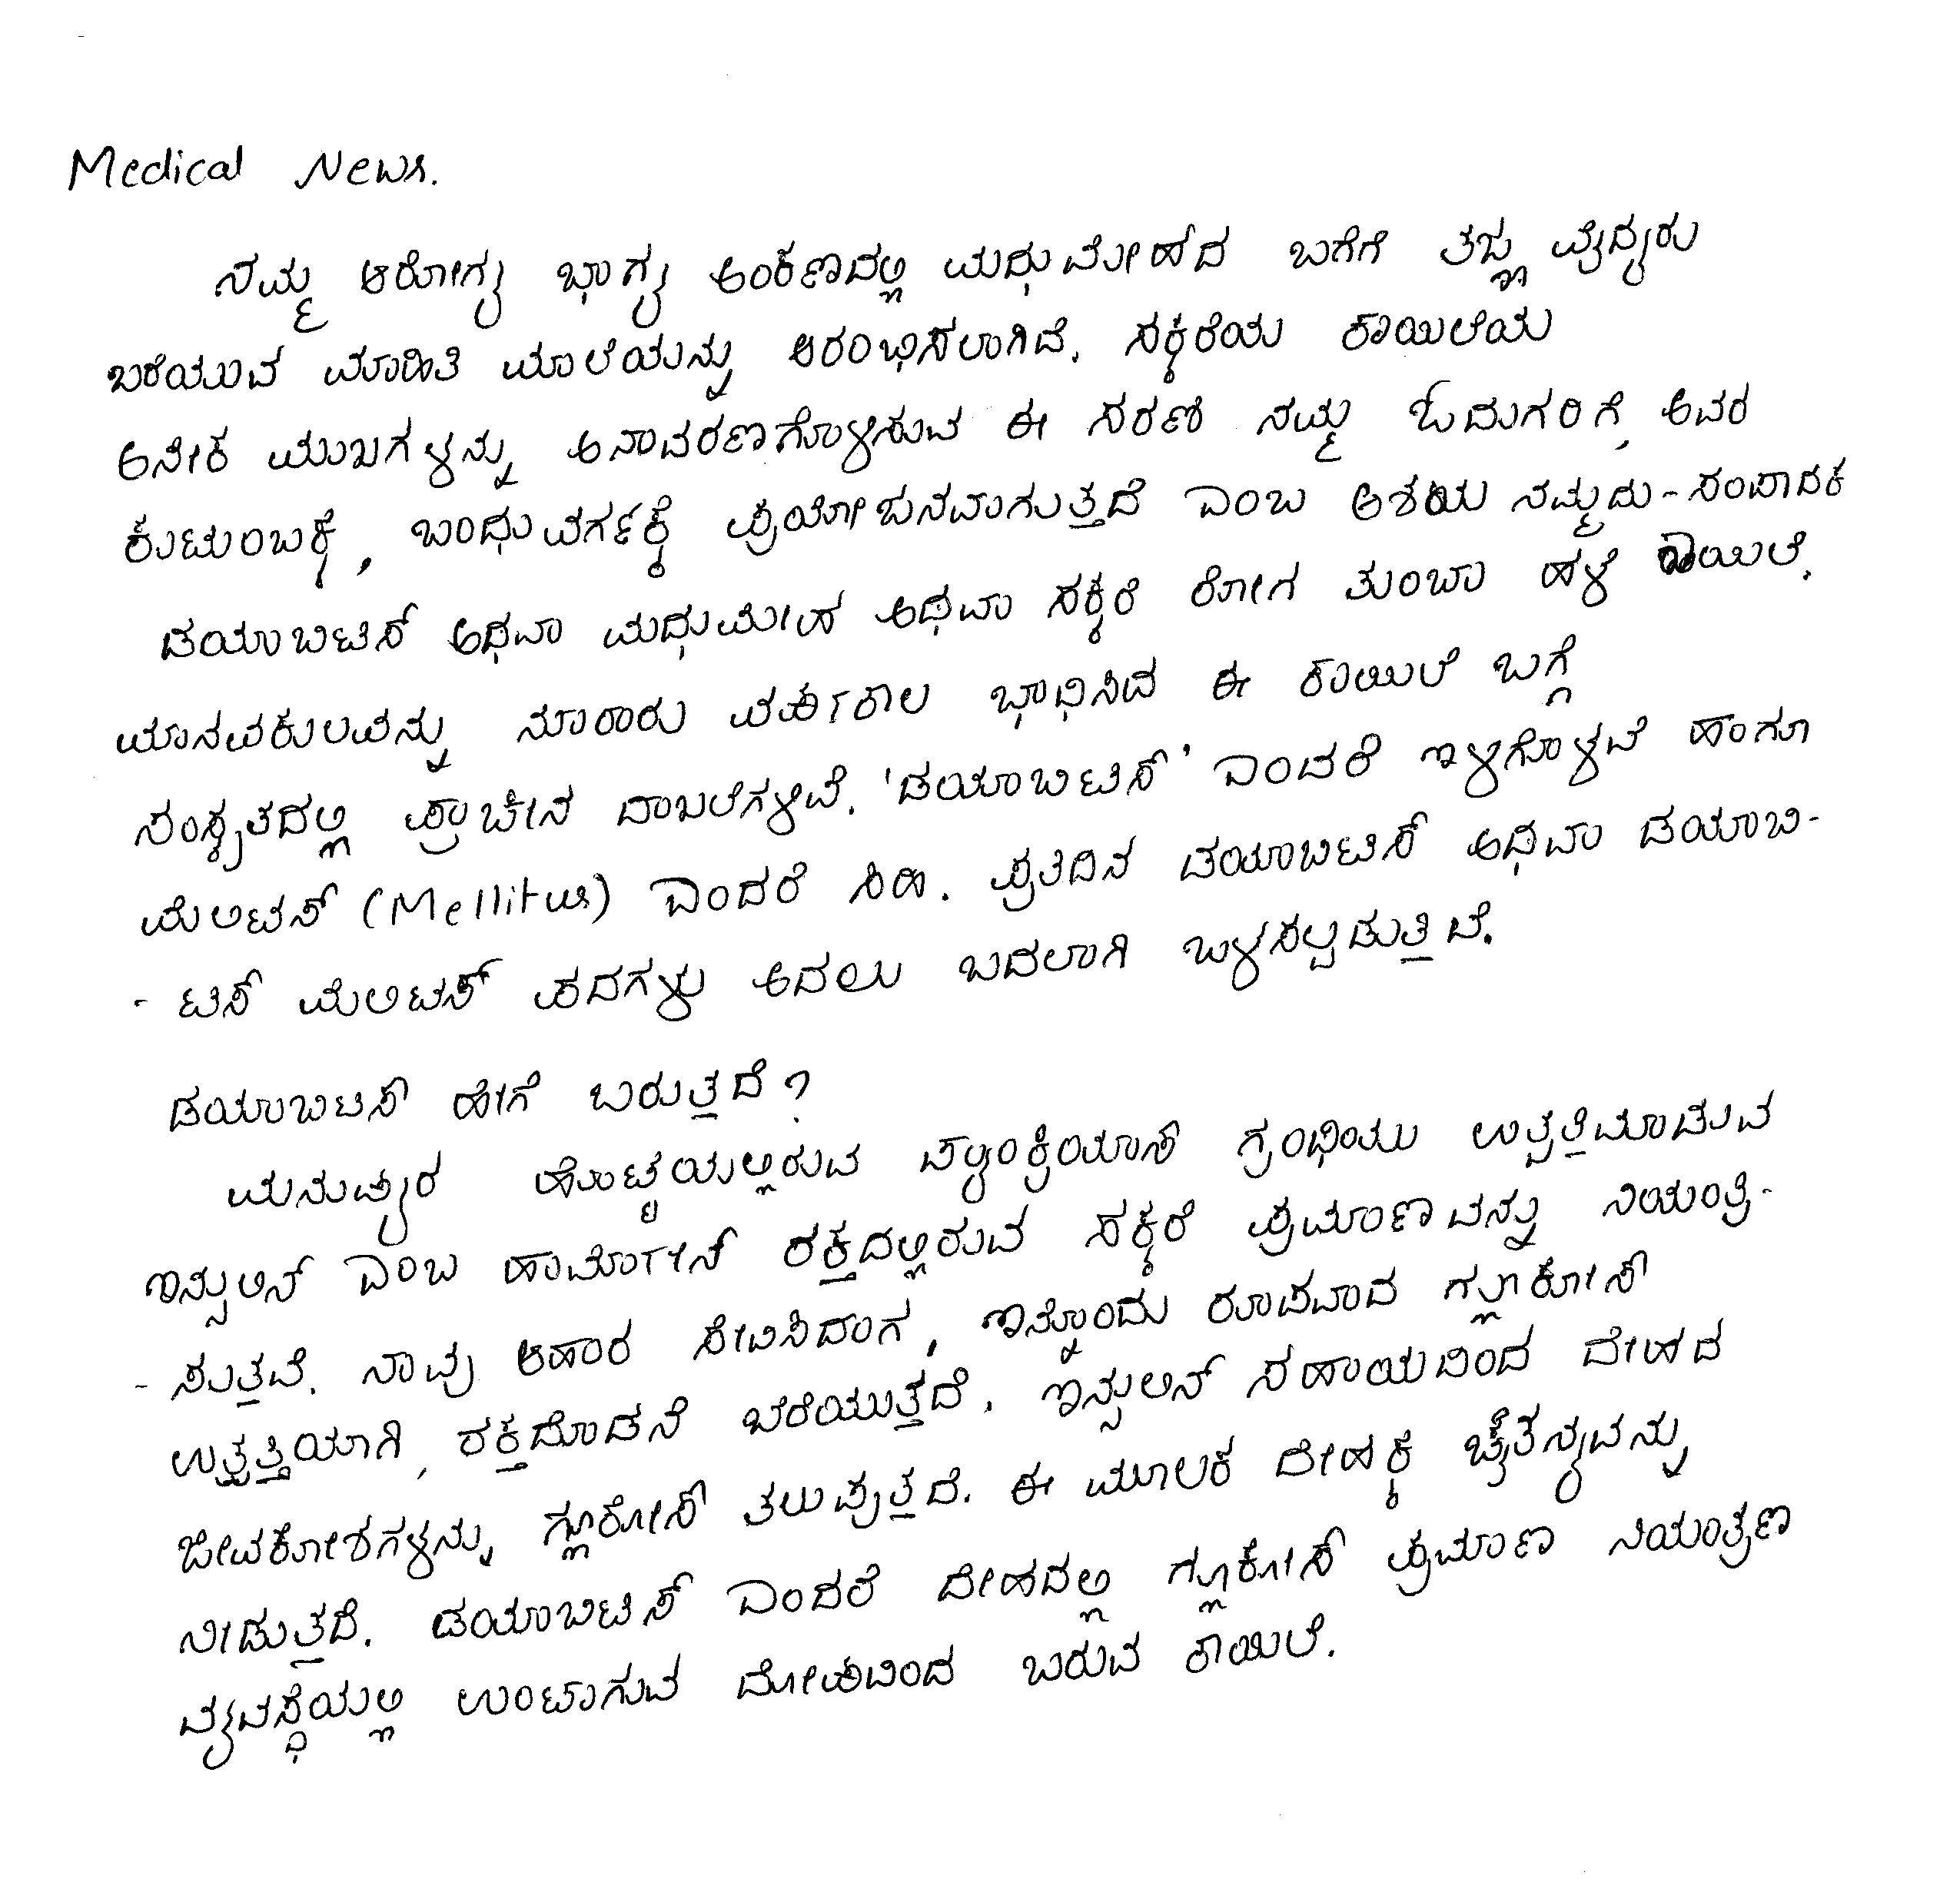 Medical News.
ನಮ್ಮ ಆರೋಗ್ಯ ಭಾಗ್ಯ ಅಂಕಣದಲ್ಲಿ ಮಧುಮೇಹದ ಬಗೆಗೆ ತಜ್ಞ ವೈದ್ಯರು
ಬರೆಯುವ ಮಾಹಿತಿ ಮಾಲೆಯನ್ನು ಆರಂಭಿಸಲಾಗಿದೆ. ಸಕ್ಕರೆಯ ಕಾಯಿಲೆಯ
ಅನೇಕ ಮುಖಗಳನ್ನು ಅನಾವರಣಗೊಳಿಸುವ ಈ ಸರಣಿ ನಮ್ಮ ಓದುಗರಿಗೆ, ಅವರ
ಕುಟುಂಬಕ್ಕೆ, ಬಂಧುವರ್ಗಕ್ಕೆ ಪ್ರಯೋಜನವಾಗುತ್ತದೆ ಎಂಬ ಆಶಯ ನಮ್ಮದು - ಸಂಪಾದಕ
ಡಯಾಬಿಟಿಸ್ ಅಥವಾ ಮಧುಮೇಹ ಅಥವಾ ಸಕ್ಕರೆ ರೋಗ ತುಂಬಾ ಹಳೆ ಕಾಯಿಲೆ.
ಮಾನವಕುಲವನ್ನು ನೂರಾರು ವರ್ಷಕಾಲ ಭಾಧಿಸಿದ ಈ ಕಾಯಿಲೆ ಬಗ್ಗೆ
ಸಂಸ್ಕೃತದಲ್ಲಿ ಪ್ರಾಚೀನ ದಾಖಲೆಗಳಿವೆ. 'ಡಯಾಬಿಟಿಸ್' ಎಂದರೆ ಇಳಿಗೊಳವೆ ಹಾಗೂ
ಮೆಲಿಟಸ್ (Mellitus) ಎಂದರೆ ಸಿಹಿ. ಪ್ರತಿದಿನ ಡಯಾಬಿಟಿಸ್ ಅಥವಾ ಡಯಾಬಿ-
- ಟಿಸ್ ಮೆಲಿಟಸ್ ಪದಗಳು ಅದಲು ಬದಲಾಗಿ ಬಳಸಲ್ಪಡುತ್ತಿವೆ.
ಡಯಾಬಿಟಿಸ್ ಹೇಗೆ ಬರುತ್ತದೆ?
ಮನುಷ್ಯರ ಹೊಟ್ಟೆಯಲ್ಲಿರುವ ಪ್ಯಾಂಕ್ರಿಯಾಸ್ ಗ್ರಂಥಿಯು ಉತ್ಪತ್ತಿಮಾಡುವ
ಇನ್ಸುಲಿನ್ ಎಂಬ ಹಾರ್ಮೋನ್ ರಕ್ತದಲ್ಲಿರುವ ಸಕ್ಕರೆ ಪ್ರಮಾಣವನ್ನು ನಿಯಂತ್ರಿ-
- ಸುತ್ತವೆ. ನಾವು ಆಹಾರ ಸೇವಿಸಿದಾಗ, ಇನ್ನೊಂದು ರೂಪವಾದ ಗ್ಲೂಕೋಸ್
ಉತ್ಪತ್ತಿಯಾಗಿ, ರಕ್ತದೊಡನೆ ಬೆರೆಯುತ್ತದೆ. ಇನ್ಸುಲಿನ್ ಸಹಾಯದಿಂದ ದೇಹದ
ಜೀವಕೋಶಗಳನ್ನು ಗ್ಲೂಕೋಸ್ ತಲುಪುತ್ತದೆ. ಈ ಮೂಲಕ ದೇಹಕ್ಕೆ ಚೈತನ್ಯವನ್ನು
ನೀಡುತ್ತದೆ. ಡಯಾಬಿಟಿಸ್ ಎಂದರೆ ದೇಹದಲ್ಲಿ ಗ್ಲೂಕೋಸ್ ಪ್ರಮಾಣ ನಿಯಂತ್ರಣ
ವ್ಯವಸ್ಥೆಯಲ್ಲಿ ಉಂಟಾಗುವ ದೋಷದಿಂದ ಬರುವ ಕಾಯಿಲೆ.